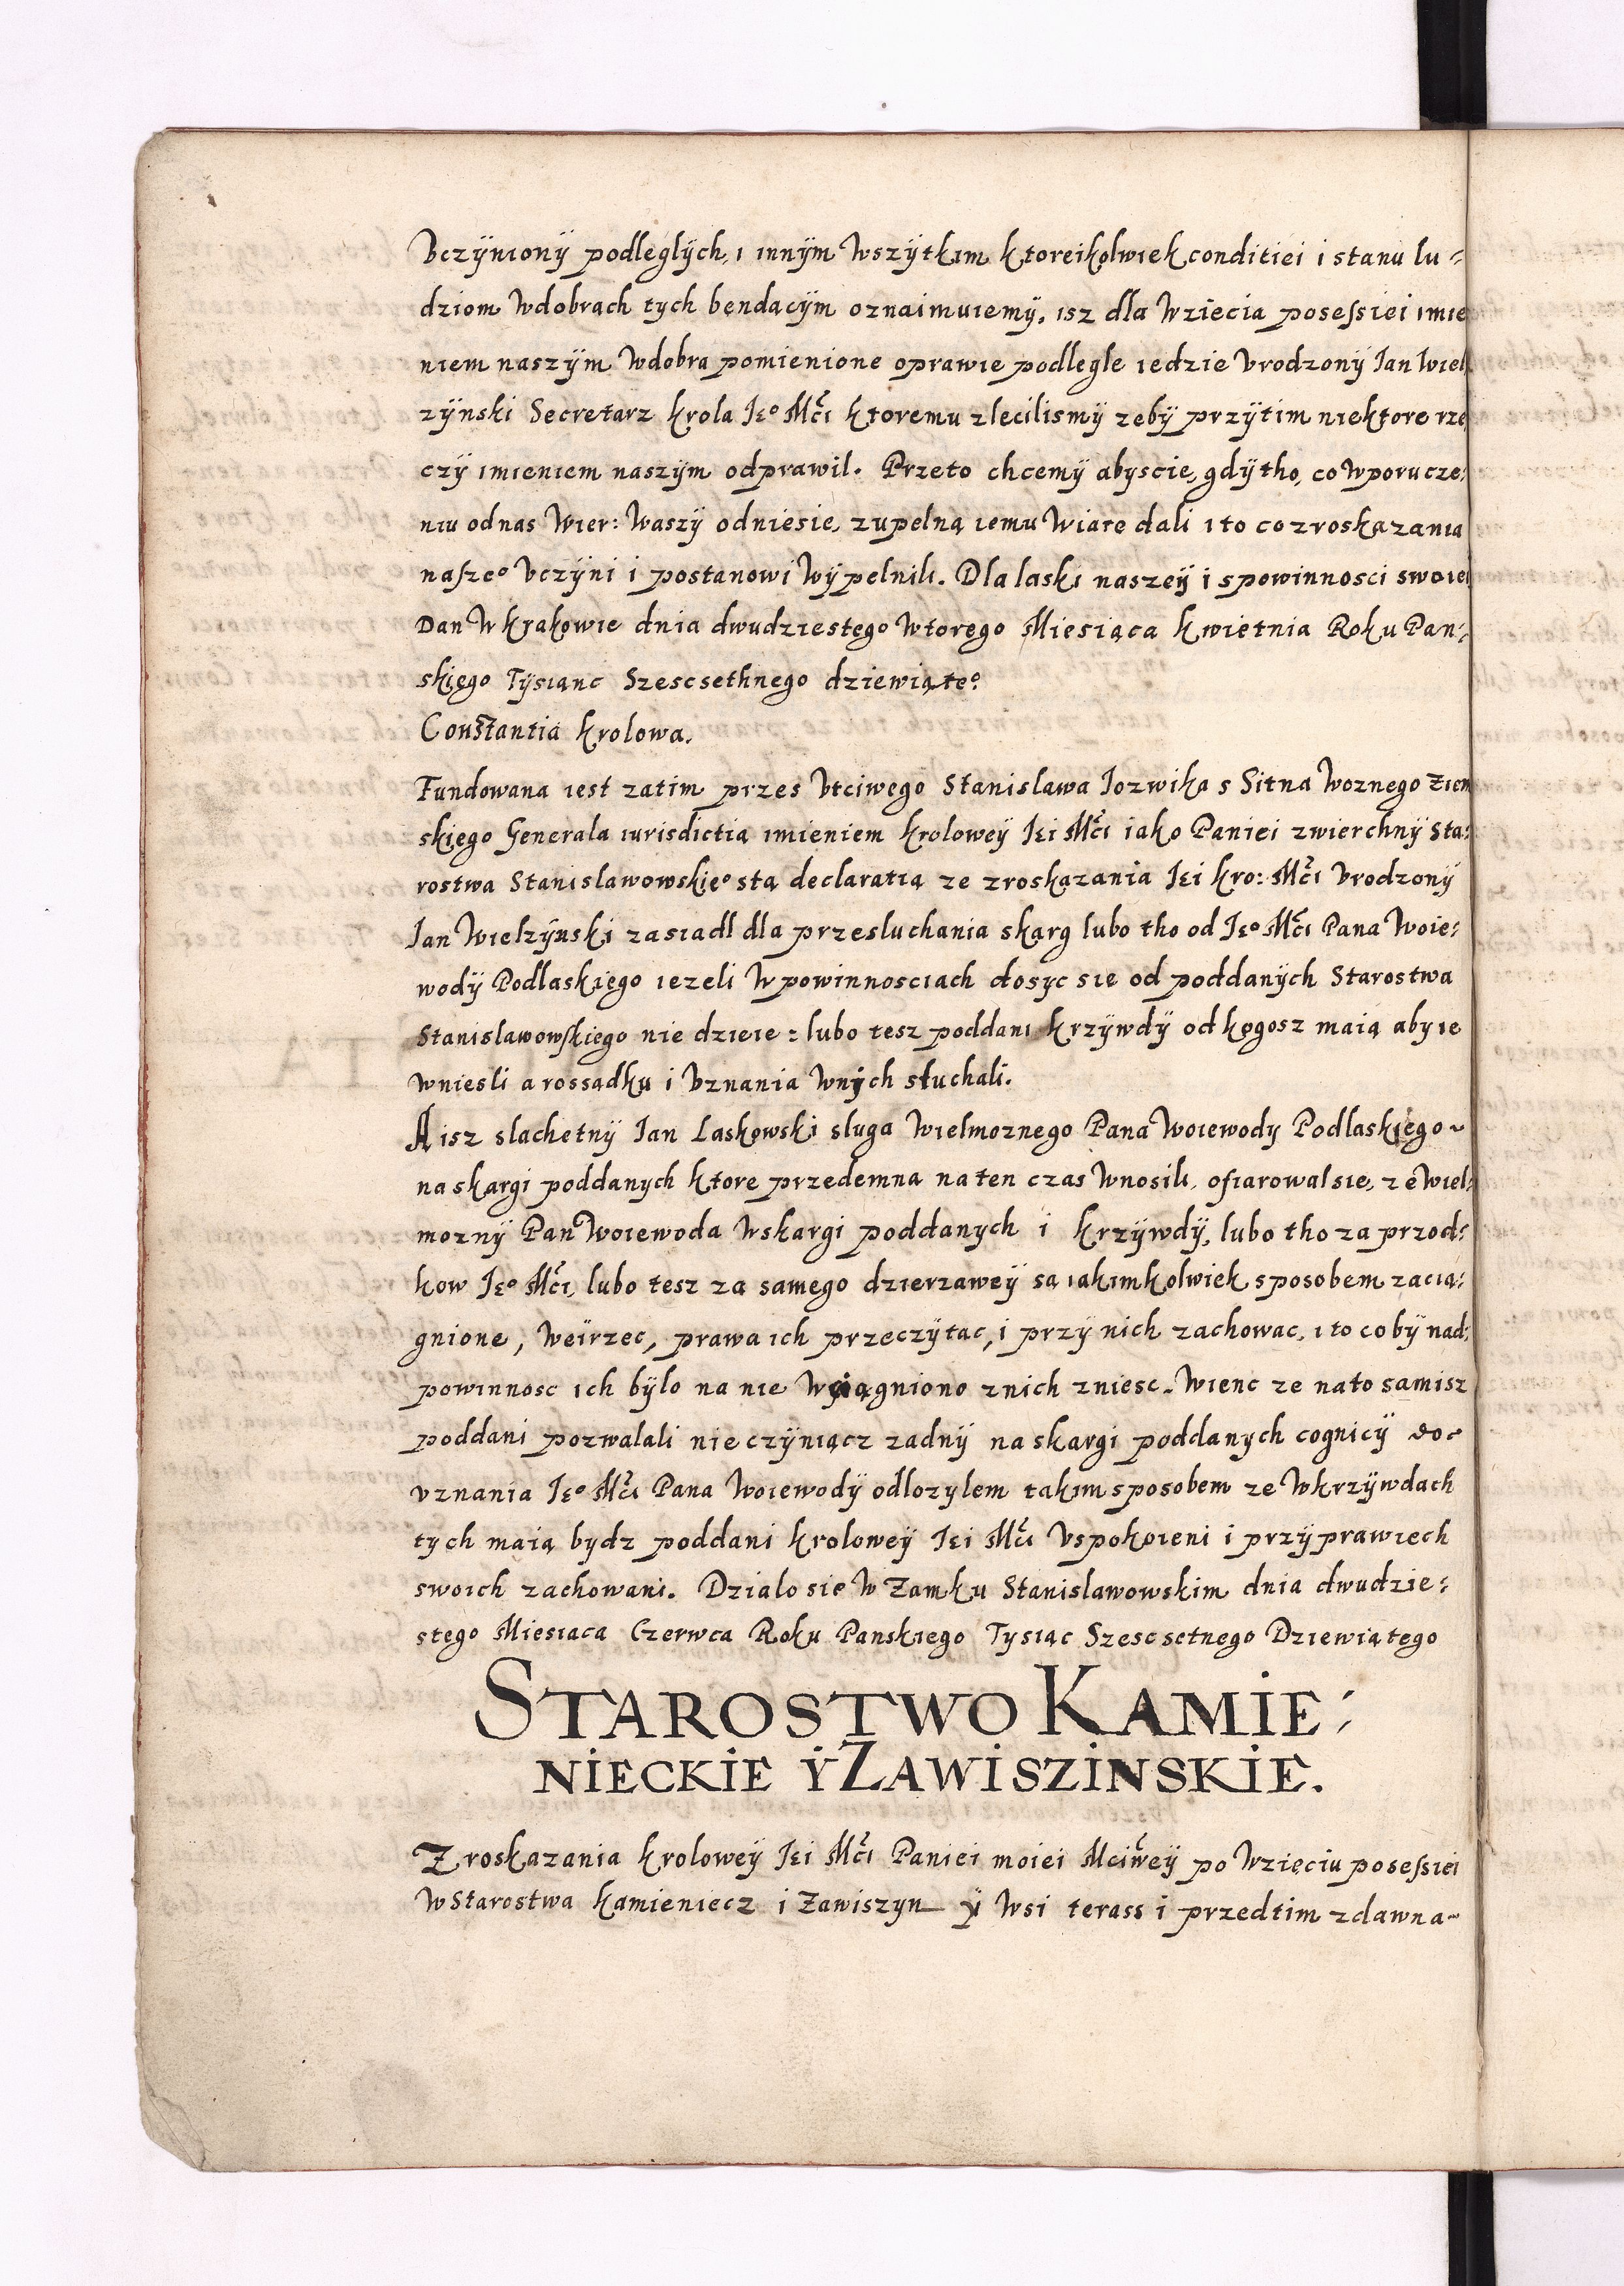 Vczÿnionÿ podleglÿch, i innÿm Wszÿtkim ktoreikolwiek conditiei i stanu lu⸗
dziom Wdobrach tych bendącÿm oznaimuiemÿ, isz dla Wziecia posessiei imie
niem naszÿm Wdobra pomienione oprawie podlegle iedzie Vrodzonÿ Jan Wiel
zÿnski Secretarz Krola Jeº Mči ktoremu zlecilismÿ zebÿ przÿtim niektore rze
czÿ imieniem naszÿm odprawil. Przeto chcemÿ abyscie, gdÿ tho, co Wporucze⸗
niu odnas Wier: Waszÿ odniesie, zupelną iemu Wiarę dali i to co zroskazania
naszeº Vczÿni i postanowi Wÿpelnili. Dla laski naszeÿ i spowinnosci swoiei
Dan W Krakowie dnia dwudziestego Wtorego Miesiąca Kwietnia Roku Pan⸗
skiego Tÿsianc Szescsethnego dziewiąteº.
Constantia Krolowa.
Fundowana iest zatim przes Vtciwego Stanislawa Jozwika s Sitna Woznego Ziem
skiego Generala iurisdictia imieniem Kroloweÿ Jei Mči iako Paniei zwierchnÿ Sta⸗
rostwa Stanislawowskieº stą declaratią ze zroskazania Jei Kro: Mči Vrodzonÿ
Jan Wielzÿnski zasiadl dla przesluchania skarg lubo tho od Jeº Mči Pana Woie⸗
wodÿ Podlaskiego iezeli W powinnosciach dosyc się od poddanÿch Starostwa
Stanislawowskiego nie dzieie: lubo tesz poddani krzÿwdÿ od kogosz maią aby ie
wniesli a rossadku i Vznania Wnÿch słuchali.
A isz slachetnÿ Jan Laskowski sluga Wielmoznego Pana Woiewody Podlaskiego~
na skargi poddanych ktore przedemna na ten czas Wnosili, ofiarowal sie, ze Wiel⸗
moznÿ Pan Woiewoda Wskargi poddanych i krzÿwdÿ, lubo tho za przod⸗
kow Jeº Mči, lubo tesz za samego dzierzaweÿ są iakimkolwiek sposobem zacią⸗
gnione, Weirzec, prawa ich przeczÿtac, i przÿ nich zachowac, i to co bÿ nad⸗
powinnosc ich bÿlo na nie Wciągniono znich zniesc. Wienc ze na to samisz
poddani pozwalali nie czÿniącz zadnÿ na skargi poddanych cognicÿ do~
vznania Jeº Mči Pana Woiewodÿ odlozylem takim sposobem ze Wkrzÿwdach
tych maią bydz poddani Kroloweÿ Jei Mči Vspokoieni i przÿ prawiech
swoich zachowani. Dzialo sie W Zamku Stanislawowskim dnia dwudzie⸗
stego Miesiaca Czerwca Roku Panskiego Tysiąc Szescsetnego Dziewiątego
STAROSTWO KAMIE⸗
NIECKIE Ÿ ZAWISZINSKIE.
Z roskazania Kroloweÿ Jei Mči Paniei moiei Mciweÿ po Wzięciu posessiei
W Starostwa Kamieniecz i Zawiszyn ÿ Wsi terass i przedtim zdawna~